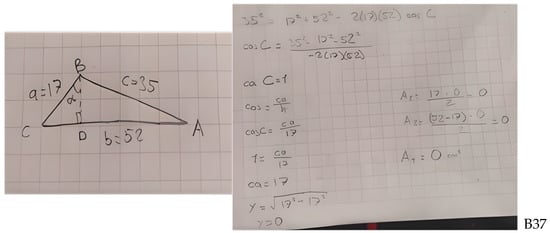 B
a=17
c=35
C
D
A
b=52
35² = 17² + 52² - 2(17)(52) cos C
cos C = 35² - 17² - 52²
-2(17)(52)
C=1
cos = ca
h
cos C = ca
17
1 = ca
17
ca = 17
y = √17² - 17²
y=0
A₁ = 17 · 0 = 0
2
A₂ = (52-17) · 0 = 0
2
= 0 cm²
B37